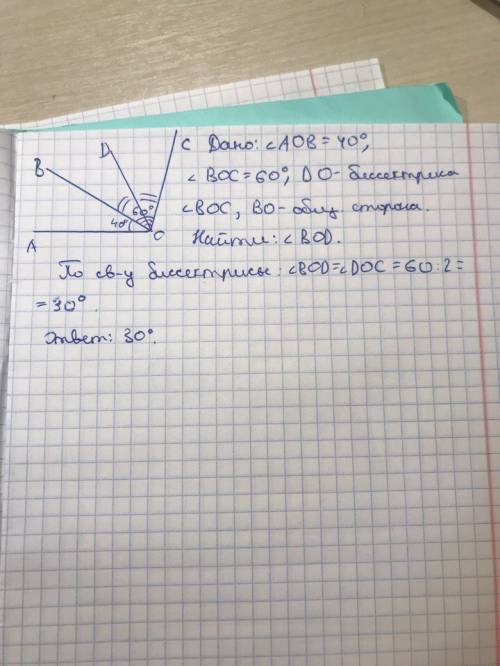 D
C
B
60°
40°
O
A
Дано: ∠AOB = 40°,
∠BOC = 60°, DO - биссектриса
∠BOC, BO - общ. сторона.
Найти: ∠BOD.
По св-у биссектрисы: ∠BOD = ∠DOC = 60 : 2 =
= 30°.
Ответ: 30°.